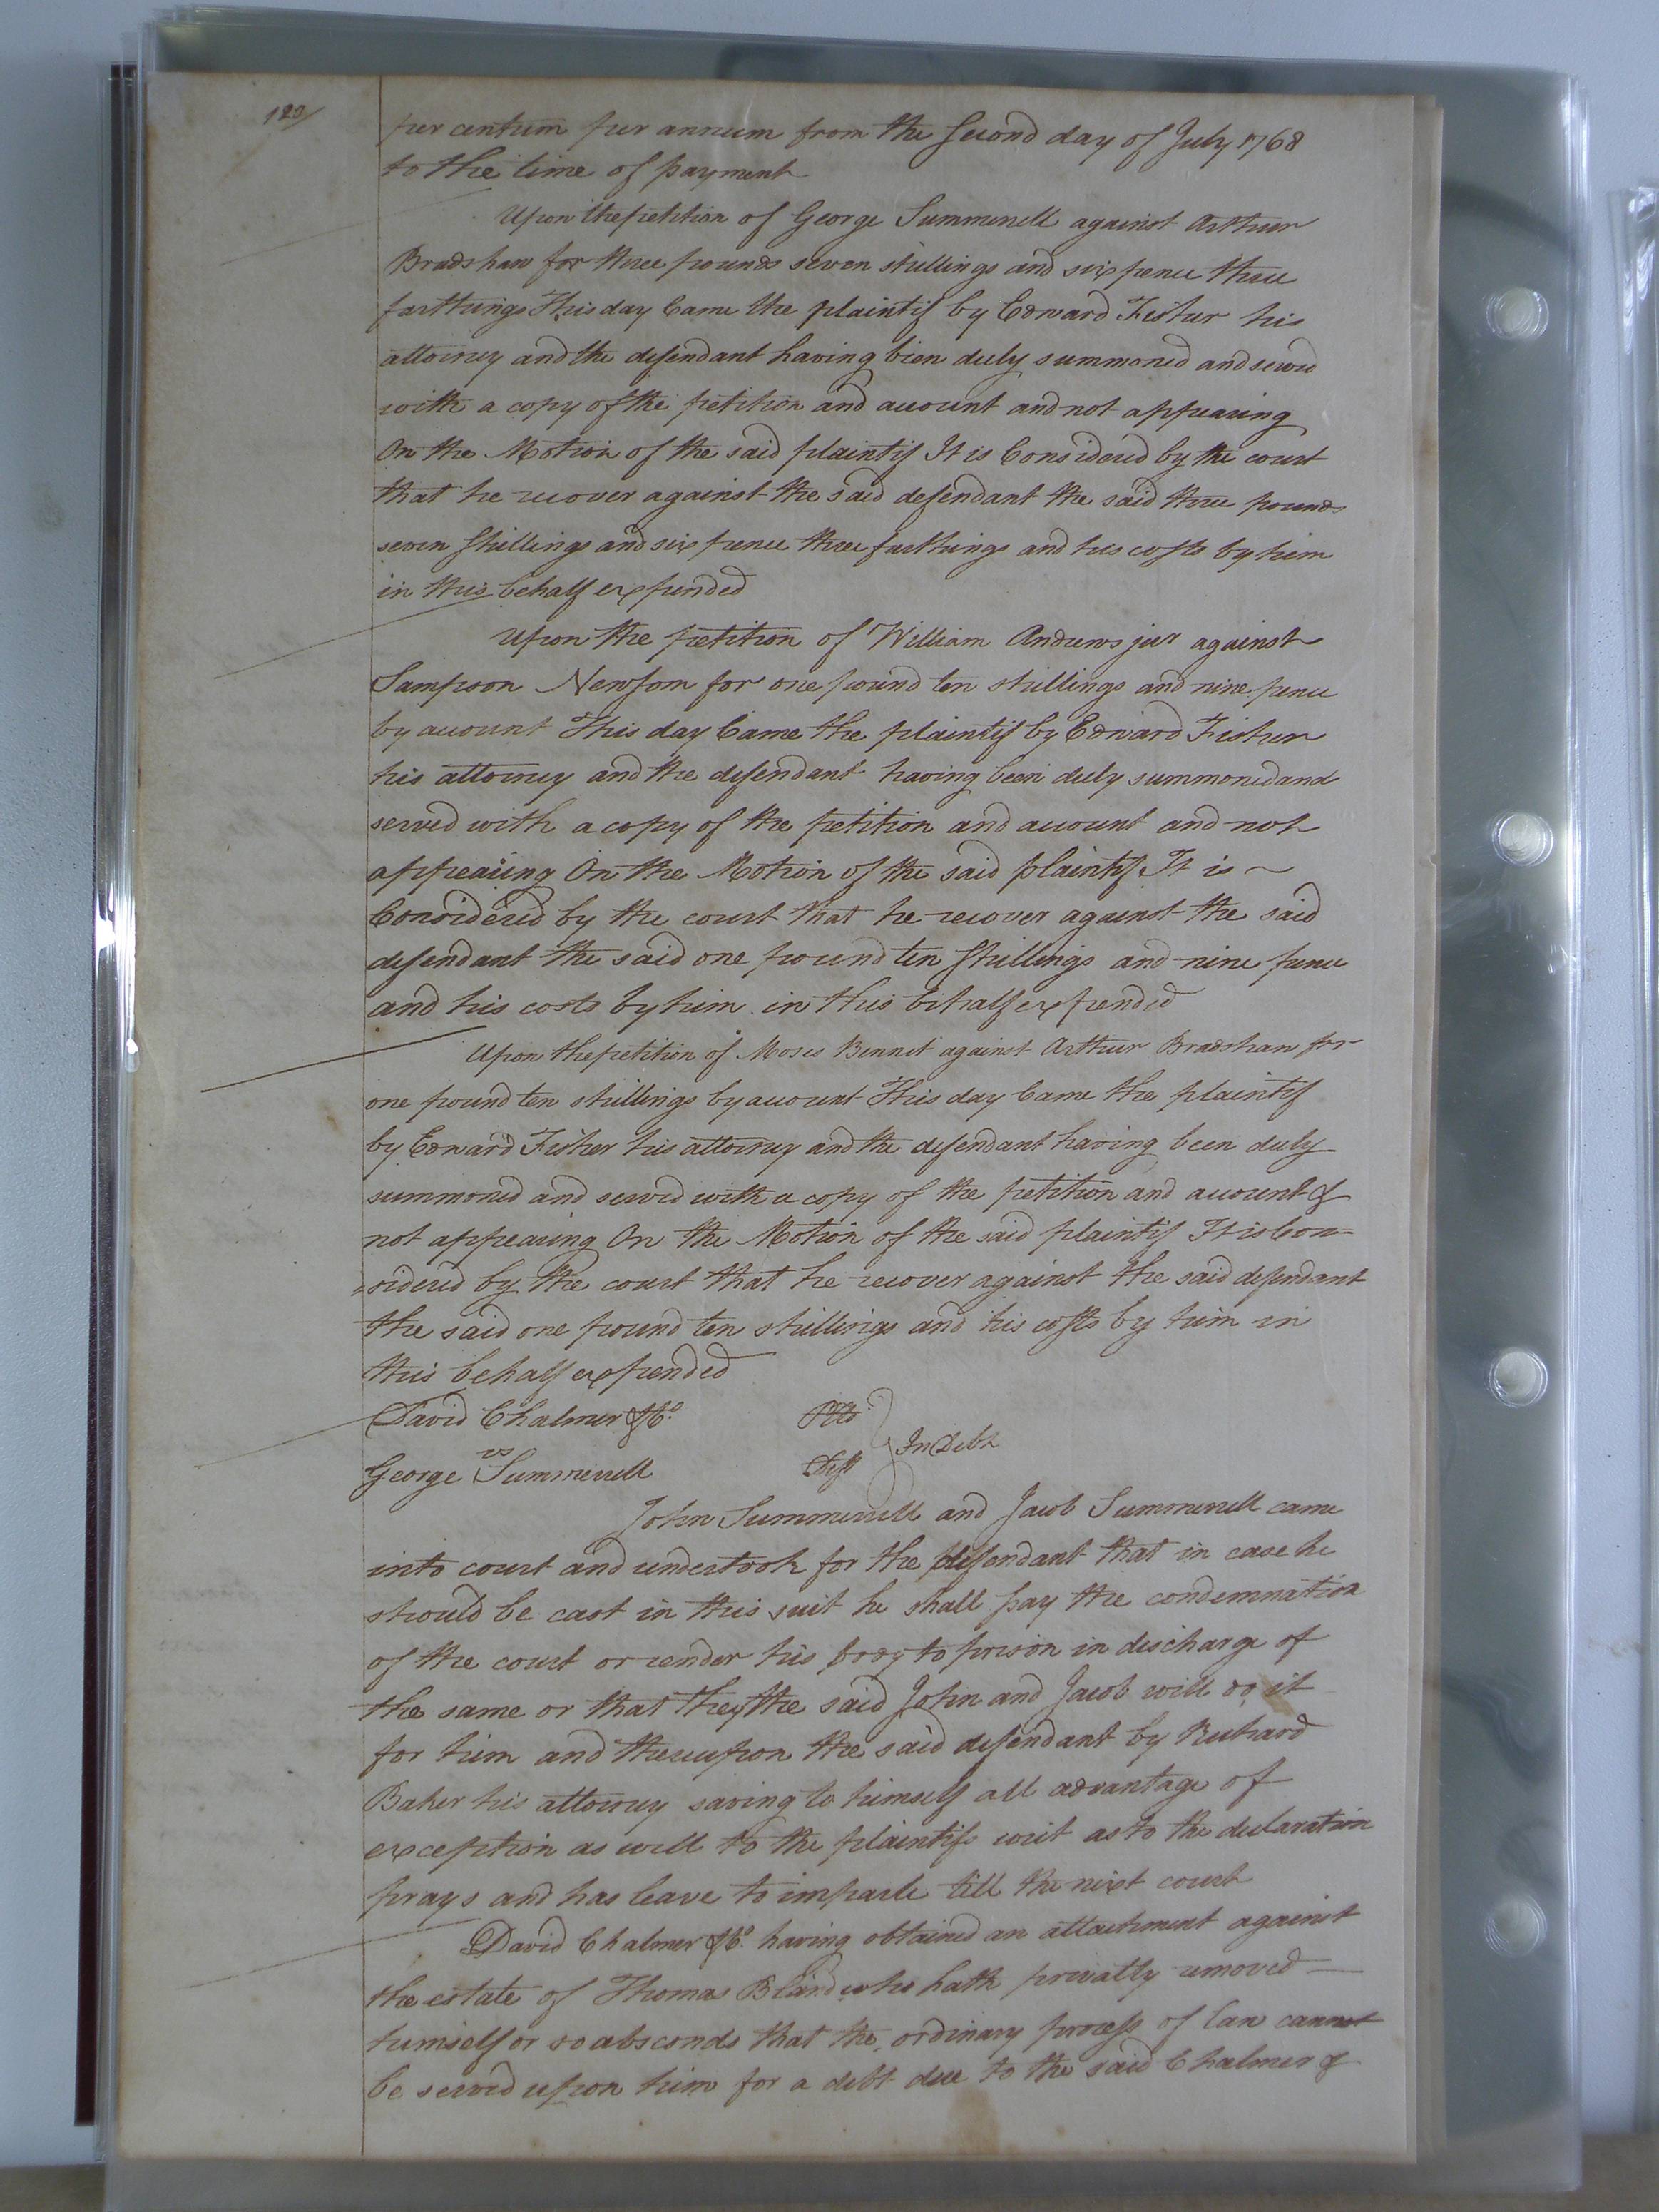 120/
per centum per annum from the second day of July 1768
to the time of payment
Upon the petition of George Summerell against Arthur
Bradshaw for three pounds seven shillings and six pence three
farthings This day Came the plaintif by Edward Fisher his
attorney and the defendant having bien duly summoned and served
with a copy of the petition and account and not appearing
On the Motion of the said plaintif It is Considered by the court
that he recover against the said defendant the said three pounds
seven shillings and six pence three farthings and his costs by him
in this behalf expended
Upon the petition of William Andrews junr against
Sampson Newsom for one pound ten shillings and nine pence
by account This day Came the plaintif by Edward Fisher
his attorney and the defendant having been duly summoned and
served with a copy of the petition and account and not
appearing On the Motion of the said plaintif It is ~
Considered by the court that he recover against the said
defendant the said one pound ten shillings and nine pence
and his costs by him in this behalf expended
Upon the petition of Moses Bennet against Arthur Bradshaw for
one pound ten shillings by account This day Came the plaintif
by Edward Fisher his attorney and the defendant having been duly
summoned and served with a copy of the petition and account &
not appearing On the Motion of the said plaintif It is Con=
=sidered by the court that he recover against the said defendant
the said one pound ten shillings and his costs by him in
this behalf expended
David Chalmer & Co. Plts
vs In Debt
George Summerell Deft
John Summerell and Jacob Summerell came
into court and undertook for the defendant that in case he
should be cast in this suit he shall pay the condemnation
of the court or render his body to prison in discharge of
the same or that they the said John and Jacob will do it
for him and thereupon the said defendant by Richard
Baker his attorney saving to himself all advantage of
exception as well to the plaintifs writ as to the declaration
prays and has leave to imparle till the next court
David Chalmer & Co. having obtained an attachment against
the estate of Thomas Bland who hath privatly removed
himself or so absconds that the ordinary process of law cannot
be served upon him for a debt due to the said Chalmer &